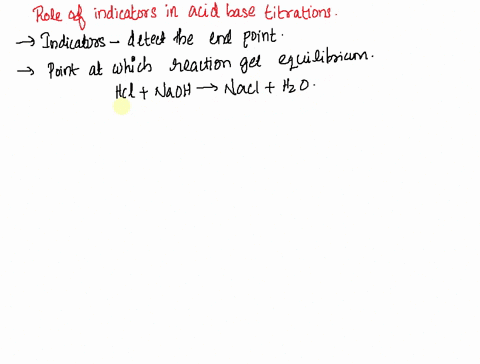 Role of indicators in acid base titrations.
→ Indicators - detect the end point.
→ Point at which reaction get equilibrium.
Hcl + NaOH → Nacl + H2O.